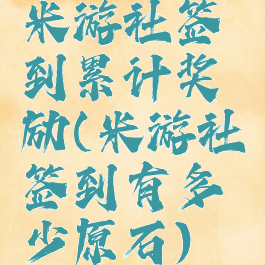 米游社签
到累计奖
励(米游社
签到有多
少原石)